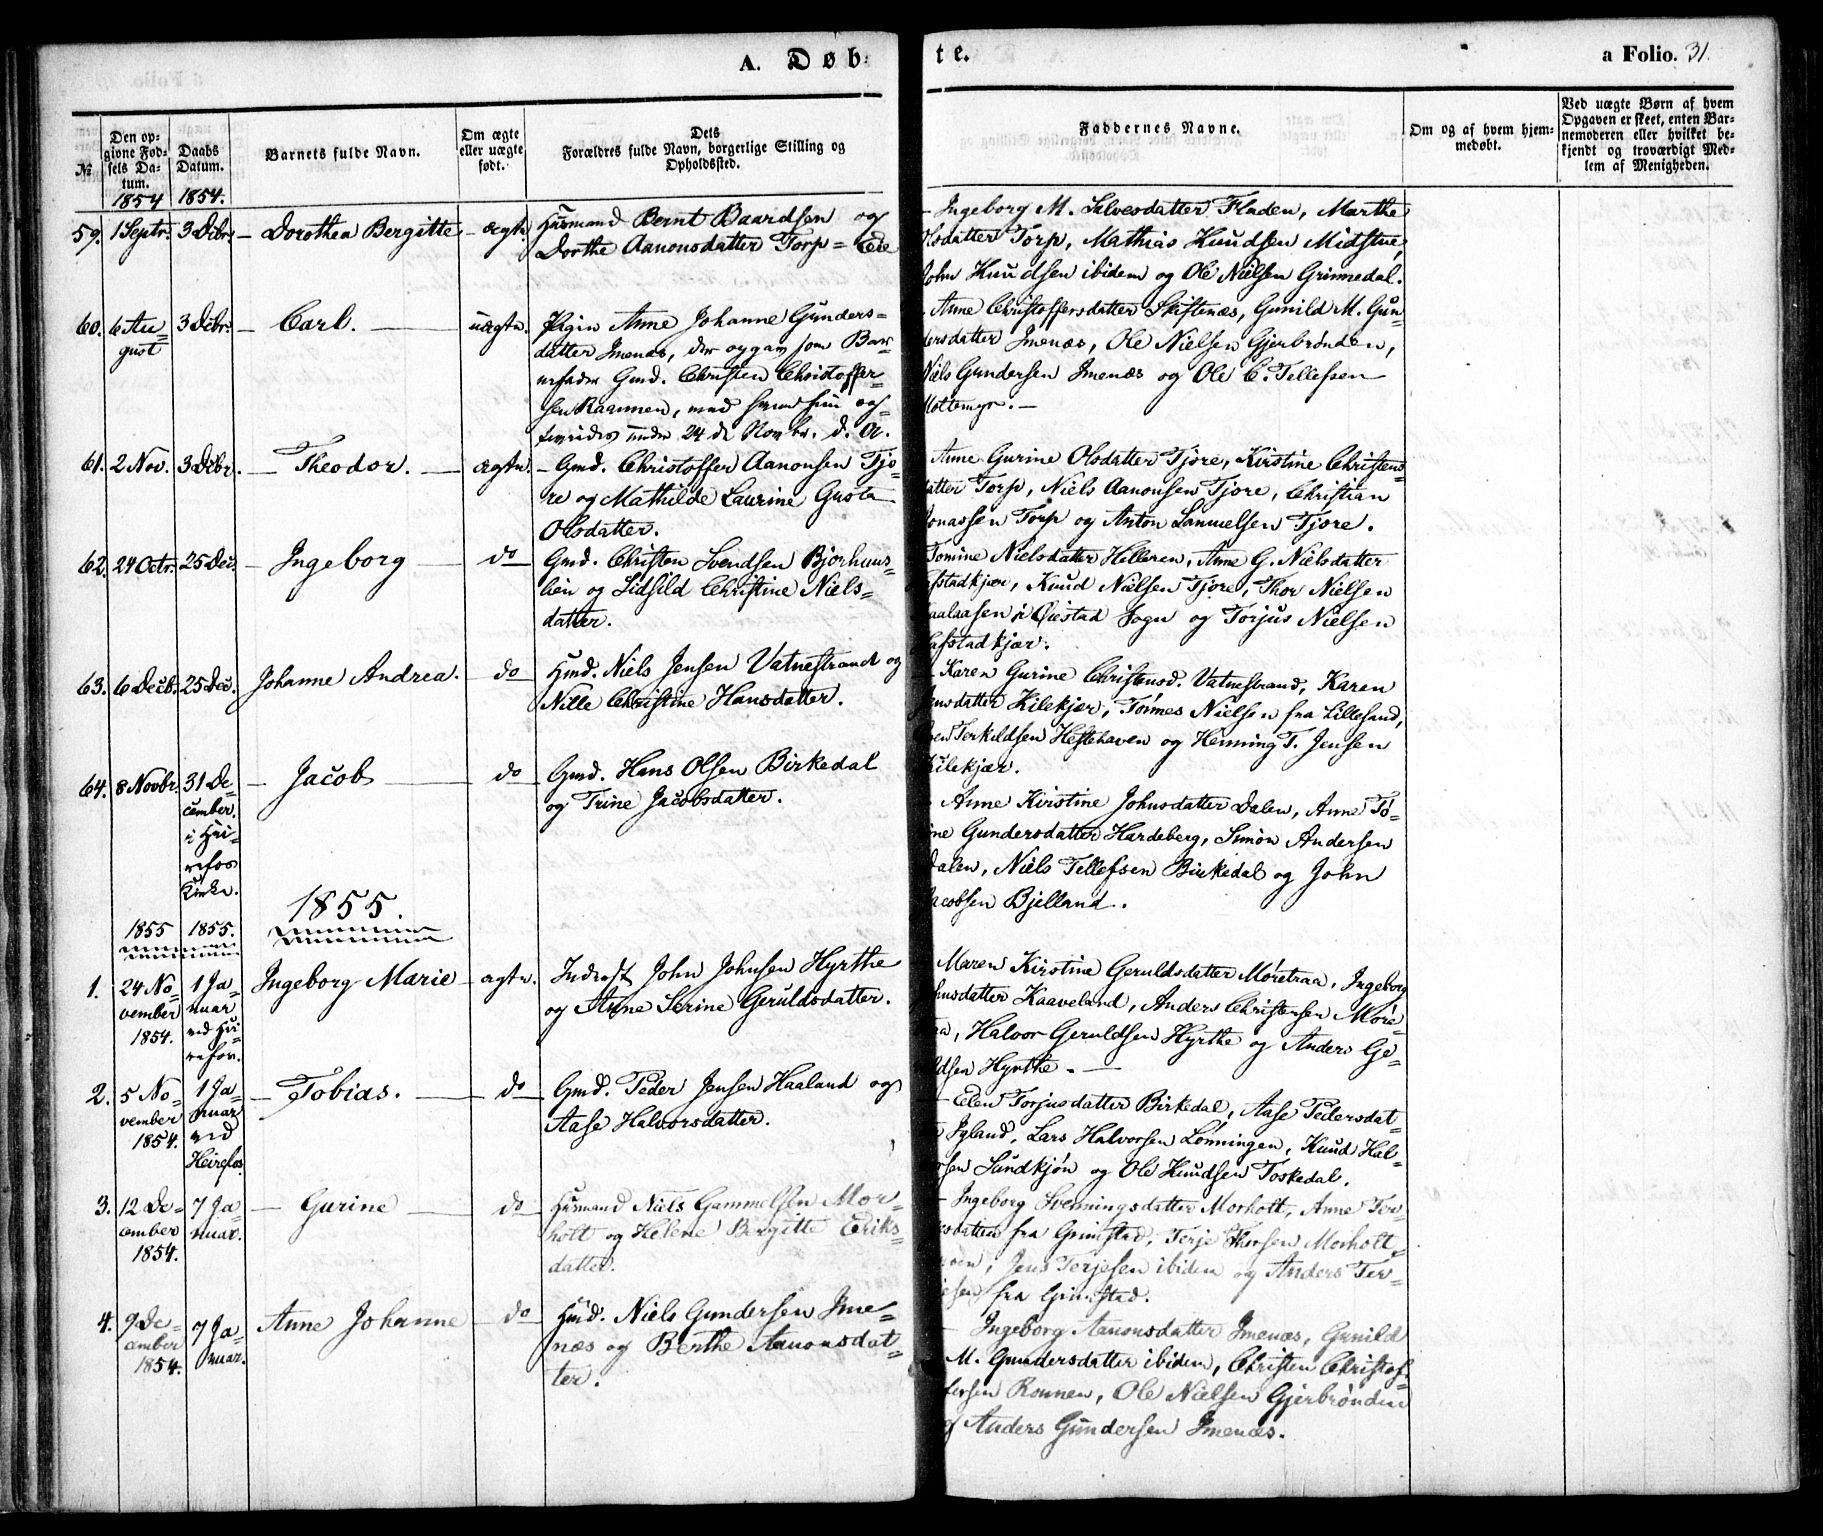 A. Døb= te. a Folio. 31.
No
Den op=
givne Fød=
sels Da=
tum.
1854
Daabs
Datum.
1854.
Barnets fulde Navn.
Om ægte
eller uægte
født.
Dets
Forældres fulde Navn, borgerlige Stilling og
Opholdssted.
Faddernes Navne.
Om og af hvem hjem=
medøbt.
Ved uægte Børn af hvem
Opgaven er skeet, enten Bar=
nemoderen eller hvilket be=
kjendt og troværdigt Med=
lem af Menigheden.
59. 1 Septr. 3 Dcbr. — Dorothea Bergitte — ægte.
Husmand Bernt Baardsen og
Dorthe Aanonsdatter Torp = Ede
— Ingeborg M. Salvesdatter Fladen, Marthe
Olsdatter Torp, Mathias Knudsen Midstue,
John Knudsen ibidem og Ole Nielsen Grimmedal.
60. 6 Au=
gust
3 Dcbr. — Carl. — uægte.
Pigen Anne Johanne Gunders=
datter Imenæs, der opgav som Bar=
nefader Gmd. Christen Christoffer=
sen Raannen, med
under 24 de Novbr. d. A.
Anne Christoffersdatter Skiftenæs, Gunild M. Gun=
dersdatter Imenæs, Ole Nielsen Gjerbrønden,
Niels Gundersen Imenæs og Ole C. Tellefsen
Moltemyr. —
61. 2 Nov. 3 Dcbr. — Theodor. — ægte.
— Gmd. Christoffer Aanonsen Tjo=
re og Mathilde Laurine Gusta
Olsdatter.
Anne Gurine Olsdatter Tjore, Kirstine Christens=
datter Torp, Niels Aanonsen Tjore, Christian
Jonassen Torp og Anton Samuelsen Tjore.
62. 24 Octr. 25 Dec. — Ingeborg — do
Gmd. Christen Svendsen Bjorhuus=
lien og Sidsild Christine Niels=
datter.
Tomine Nielsdatter Helleren, Anne G. Nielsdatter
Hafstadkjær, Knud Nielsen Tjore, Thor Nielsen
i Øiestad Sogn og Torjus Nielsen
Hafstadkjær.
63. 6 Decb. 25 Dec. Johanne Andrea. — do
Hmd. Niels Jensen Vatnestrand og
Nille Christine Hansdatter.
— Karen Gurine Christensd. Vatnestrand, Karen
Jensdatter Kilekjær, Tønnes Nielsen fra Lillesand,
Terkildsen Hestehaven og Henning T. Jensen
Kilekjær.
64. 8 Novbr. 31 De=
cember.
i Hei=
refos
Kirke.
— Jacob — do
Gmd. Hans Olsen Birkedal
og Trine Jacobsdatter.
Anne Kirstine Johnsdatter Dalen, Anne To=
rine Gundersdatter Hardeberg, Simon Andersen
Dalen, Niels Tellefsen Birkedal og John
Jacobsen Bjelland.
1855.
1855 1855.
1. 24 No=
vember
1854.
1 Ja=
nuar
ved Hei=
refos.
Ingeborg Marie — ægte.
Inderst John Johnsen Hyrthe
og Anne Serine Geruldsdatter.
Maren Kirstine Geruldsdatter Møretraa, Ingeborg
Johnsdatter Kaaveland, Anders Christensen Møre=
traa, Halvor Geruldsen Hyrthe og Anders Ge=
ruldsen Hyrthe. —
2. 5 No=
vember
1854.
1 Ja=
nuar
ved
Heirefos.
— Tobias. — do
Gmd. Peder Jensen Haaland og
Aase Halvorsdatter.
— Elen Torjusdatter Birkedal, Aase Pedersdat=
ter Igland, Lars Halvorsen Lønningen, Knud Hal=
vorsen Sundkjøn og Ole Knudsen Toskedal.
3. 12 De=
cember
1854.
7 Ja=
nuar.
— Gurine — do
Husmand Niels Gammelsen Mor=
holt og Helene Birgitte Eriks=
datter.
— Ingeborg Svenningsdatter Morholt, Anne Ter=
jesdatter fra Grimstad, Terje Thorsen Morholt=
moen, Jens Terjesen ibidem og Anders Ter=
jesen fra Grimstad.
4. 9 De=
cember
1854.
7 Ja=
nuar.
Anne Johanne — do
Hmd. Niels Gundersen Ime=
næs og Berthe Aanonsdat=
ter.
— Ingeborg Aanonsdatter Imenæs, Gunild
M. Gundersdatter ibidem, Christen Christof=
fersen Ronnen, Ole Nielsen Gjerbrønden
og Anders Gundersen Imenæs.